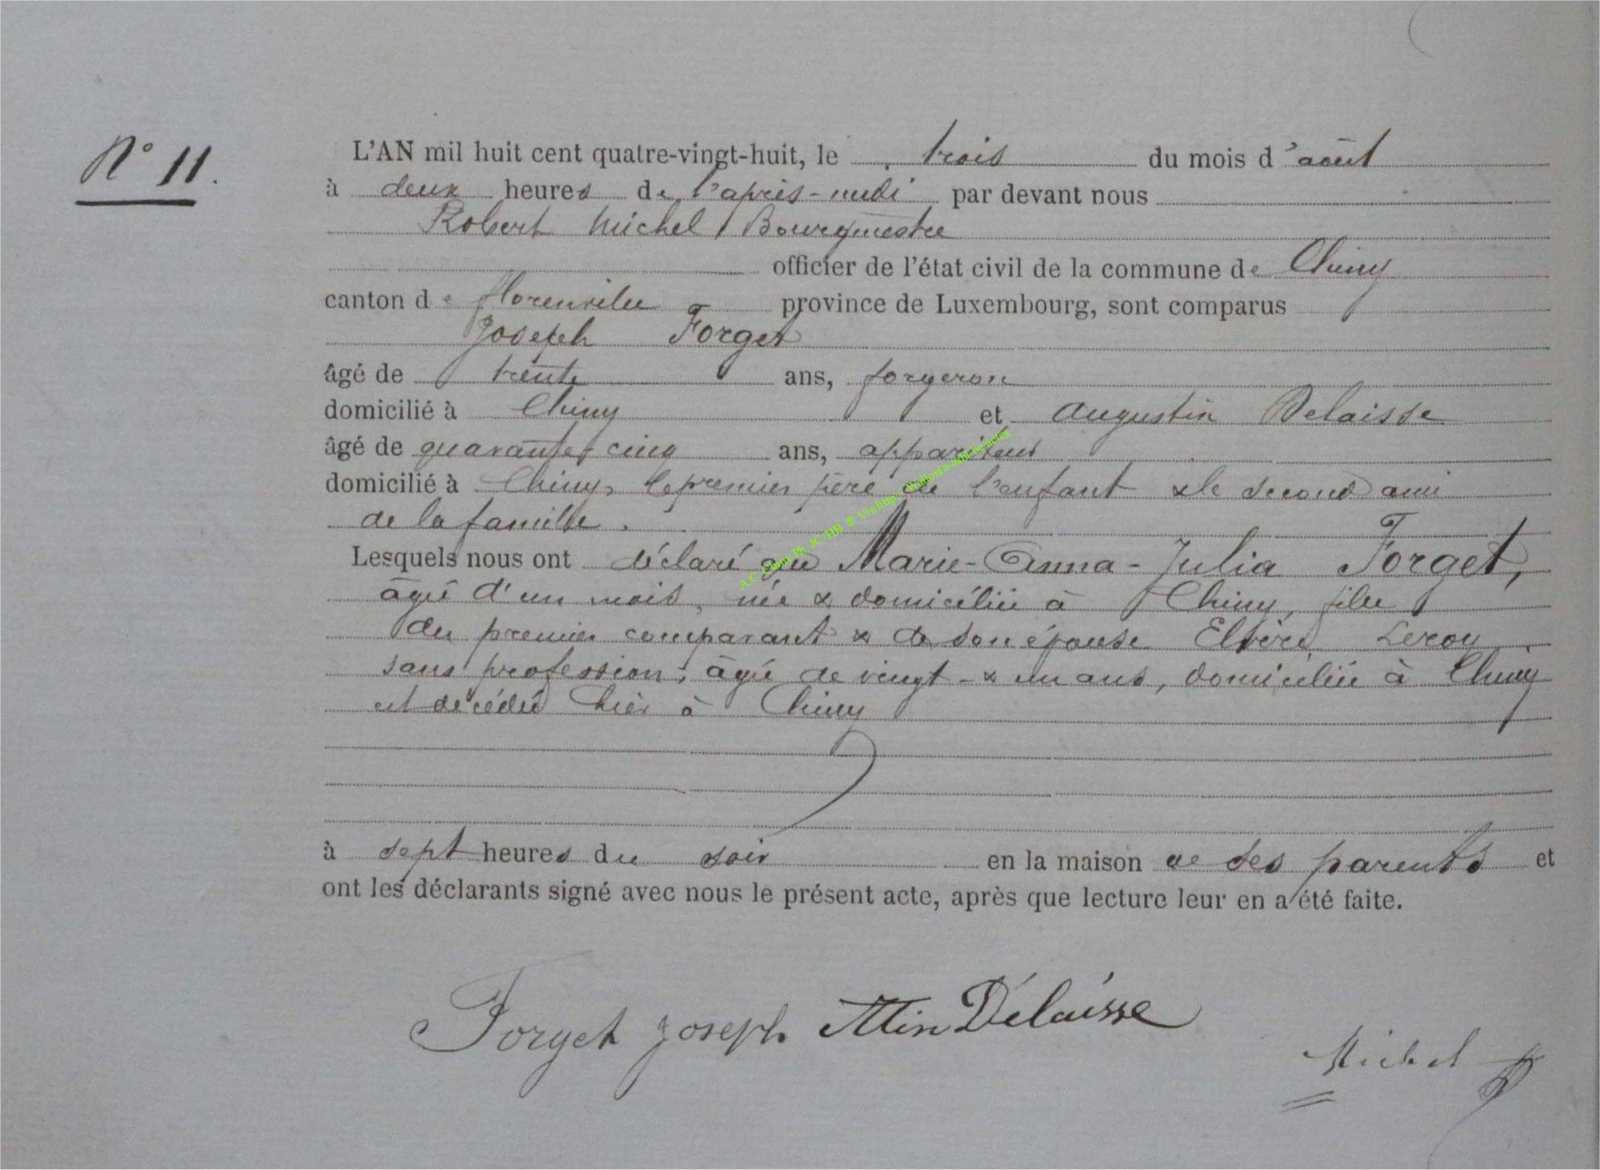 N° 11.
L'AN mil huit cent quatre-vingt-huit, le trois du mois d'août
à deux heures de l'après-midi par devant nous
Robert Michel Bourgmestre
officier de l'état civil de la commune de Chiny
canton de florenville province de Luxembourg, sont comparus
Joseph Forget
âgé de trente ans, forgeron
domicilié à Chiny et Augustin Delaisse
âgé de quarante cinq ans, appariteur
domicilié à Chiny, le premier père de l'enfant & le second ami
de la famille.
Lesquels nous ont déclaré que Marie-Anna-Julia Forget,
âgée d'un mois, née & domiciliée à Chiny, fille
du premier comparant & de son épouse Elvire Leroy
sans profession, âgée de vingt-& un ans, domiciliée à Chiny
est décédée hier à Chiny
à sept heures du soir en la maison de ses parents et
ont les déclarants signé avec nous le présent acte, après que lecture leur en a été faite.
Forget Joseph Atin Délaisse
Michel